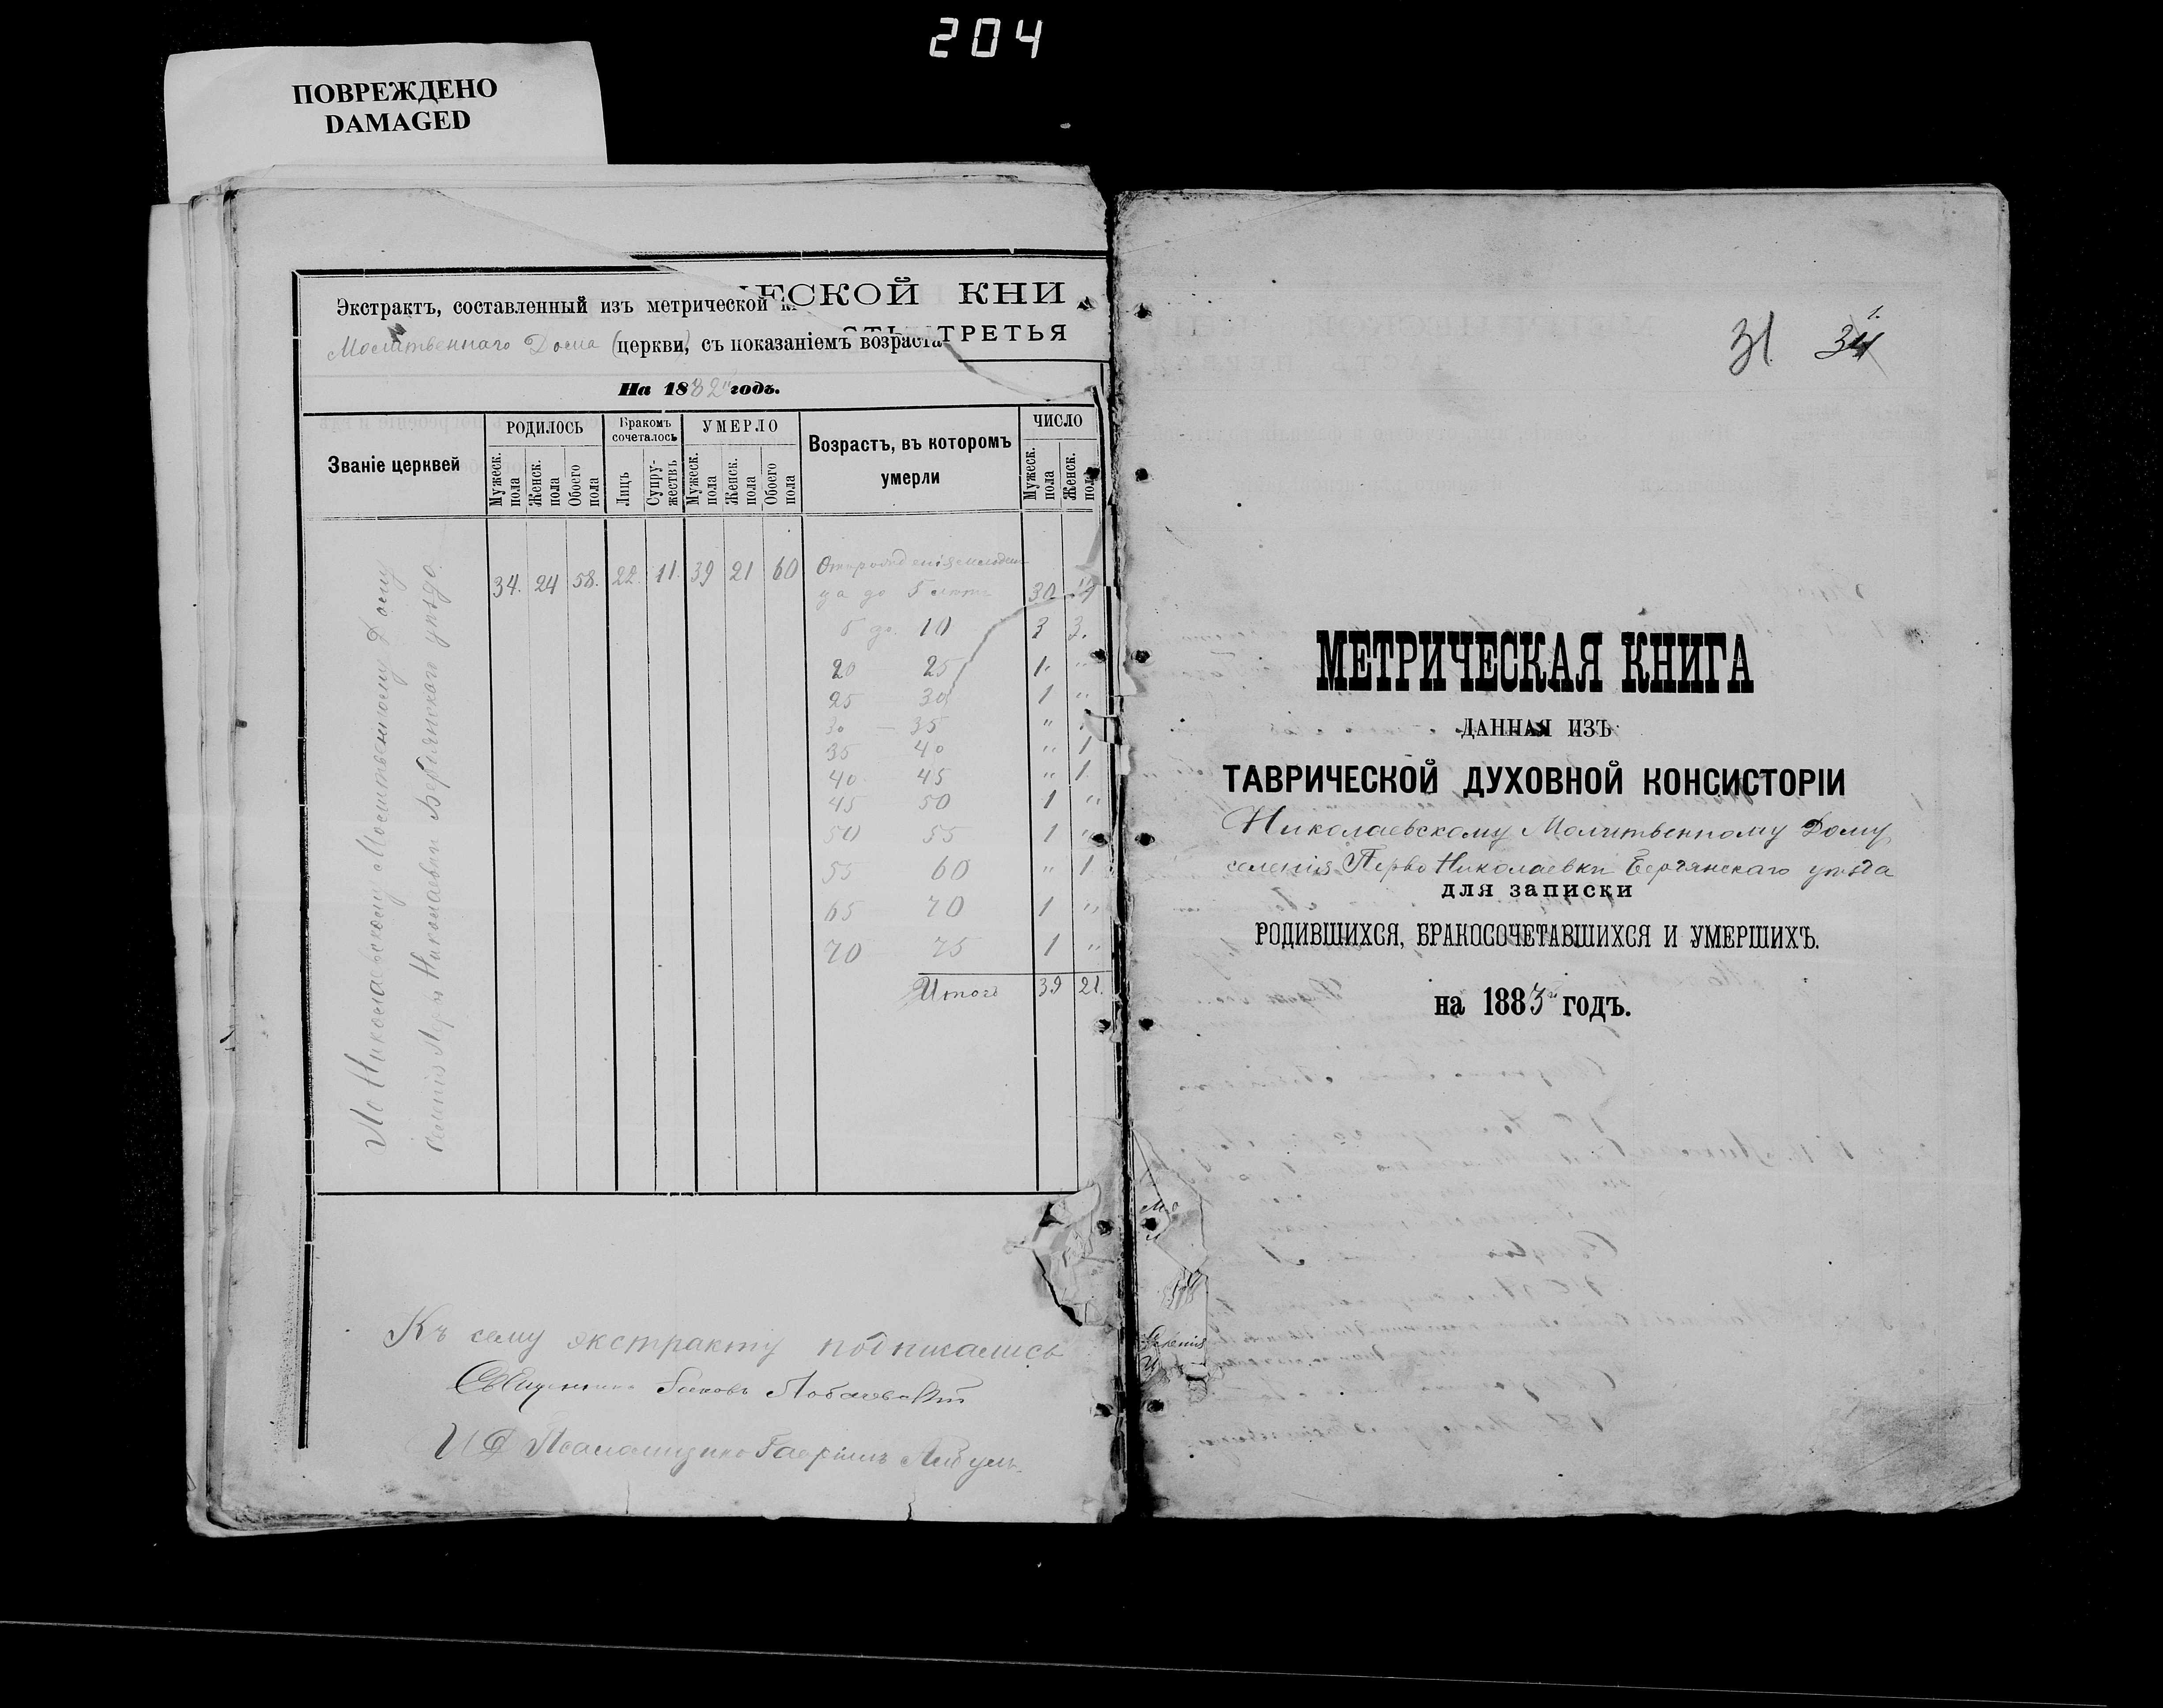 204
ПОВРЕЖДЕНО
DAMAGED
ЧЕСКОЙ КНИ
Экстрактъ, составленный изъ метрической
СТЬ ТРЕТЬЯ
Молитвеннаго Дома (церкви), съ показаніемъ возраста
На 1882 годъ.
Званіе церквей
РОДИЛОСЬ
Бракомъ сочеталось
УМЕРЛО
Возрастъ, въ которомъ умерли
ЧИСЛО
Мужеск. пола
Женск. пола
Обоего пола
Лицъ
Супружествъ
Мужеск. пола
Женск. пола
Обоего пола
Мужеск. пола
Женск. пола
По Николаевскому Молитвенному Дому
селенія Перво Николаевки Бердянскаго уѣзда.
34. 24 58. 22. 11. 39 21 60
до 5 лѣтъ 30
5 до 10 3 3.
20 25 1. "
25 30 1 "
30 — 35 "
35 40 " 1
40 45 " 1
45 50 1 "
50 55 1 "
55 60 " 1
65 70 1 "
70 75 1 "
Итого 39 21.
Къ сему экстракту подписались
Священникъ Іаковъ
И Д Псаломщика Гавріилъ
31 34 1.
МЕТРИЧЕСКАЯ КНИГА
ДАННАЯ ИЗЪ
ТАВРИЧЕСКОЙ ДУХОВНОЙ КОНСИСТОРІИ
Николаевскому Молитвенному Дому
селенія Перво Николаевки Бердянскаго уѣзда
для записки
РОДИВШИХСЯ, БРАКОСОЧЕТАВШИХСЯ И УМЕРШИХЪ.
на 1883 годъ.